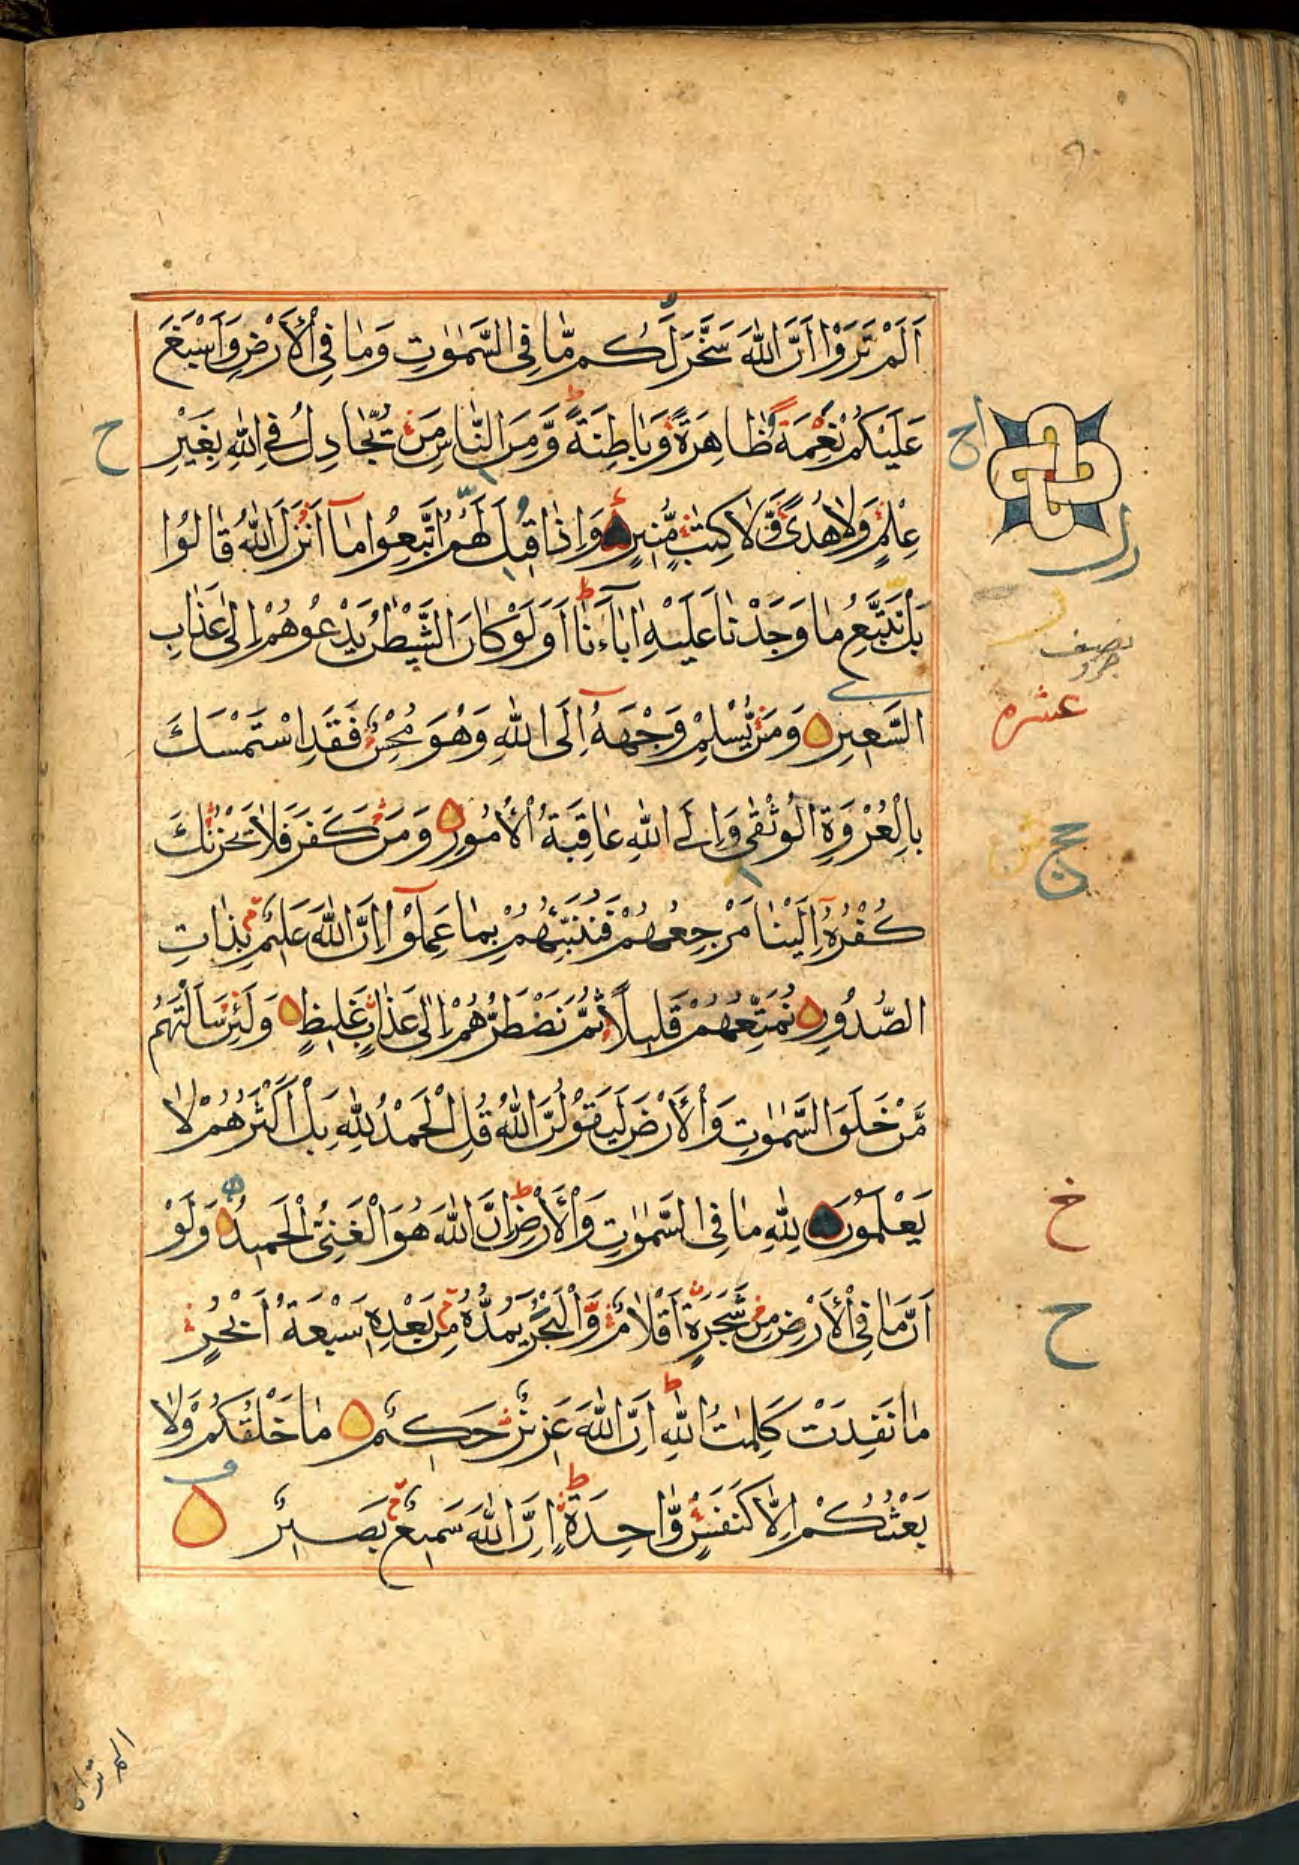 اَلَمْ تَرَوْا اَنَّ اللّٰهَ سَخَّرَ لَكُمْ مَّا فِى السَّمٰوٰتِ وَمَا فِى الْاَرْضِ وَاَسْبَغَ
عَلَيْكُمْ نِعْمَةً ظَاهِرَةً وَّبَاطِنَةً وَّمِنَ النَّاسِ مَنْ يُّجَادِلُ فِى اللّٰهِ بِغَيْرِ
عِلْمٍ وَّلَا هُدًى وَّلَا كِتٰبٍ مُّنِيْرٍ وَاِذَا قِيْلَ لَهُمُ اتَّبِعُوْا مَآ اَنْزَلَ اللّٰهُ قَالُوْا
بَلْ نَتَّبِعُ مَا وَجَدْنَا عَلَيْهِ اٰبَآءَنَا اَوَلَوْ كَانَ الشَّيْطٰنُ يَدْعُوْهُمْ اِلٰى عَذَابِ
السَّعِيْرِ وَمَنْ يُّسْلِمْ وَجْهَهٗٓ اِلَى اللّٰهِ وَهُوَ مُحْسِنٌ فَقَدِ اسْتَمْسَكَ
بِالْعُرْوَةِ الْوُثْقٰى وَاِلَى اللّٰهِ عَاقِبَةُ الْاُمُوْرِ وَمَنْ كَفَرَ فَلَا يَحْزُنْكَ
كُفْرُهٗٓ اِلَيْنَا مَرْجِعُهُمْ فَنُنَبِّئُهُمْ بِمَا عَمِلُوْٓا اِنَّ اللّٰهَ عَلِيْمٌۢ بِذَاتِ
الصُّدُوْرِ نُمَتِّعُهُمْ قَلِيْلًا ثُمَّ نَضْطَرُّهُمْ اِلٰى عَذَابٍ غَلِيْظٍ وَلَئِنْ سَاَلْتَهُمْ
مَّنْ خَلَقَ السَّمٰوٰتِ وَالْاَرْضَ لَيَقُوْلُنَّ اللّٰهُ قُلِ الْحَمْدُ لِلّٰهِ بَلْ اَكْثَرُهُمْ لَا
يَعْلَمُوْنَ لِلّٰهِ مَا فِى السَّمٰوٰتِ وَالْاَرْضِ اِنَّ اللّٰهَ هُوَ الْغَنِىُّ الْحَمِيْدُ وَلَوْ
اَنَّ مَا فِى الْاَرْضِ مِنْ شَجَرَةٍ اَقْلَامٌ وَّالْبَحْرُ يَمُدُّهٗ مِنْۢ بَعْدِهٖ سَبْعَةُ اَبْحُرٍ
مَا نَفِدَتْ كَلِمٰتُ اللّٰهِ اِنَّ اللّٰهَ عَزِيْزٌ حَكِيْمٌ مَا خَلْقُكُمْ وَلَا
بَعْثُكُمْ اِلَّا كَنَفْسٍ وَّاحِدَةٍ اِنَّ اللّٰهَ سَمِيْعٌۢ بَصِيْرٌ
ح
نصف
عشره
خ
ح
الم تر ان